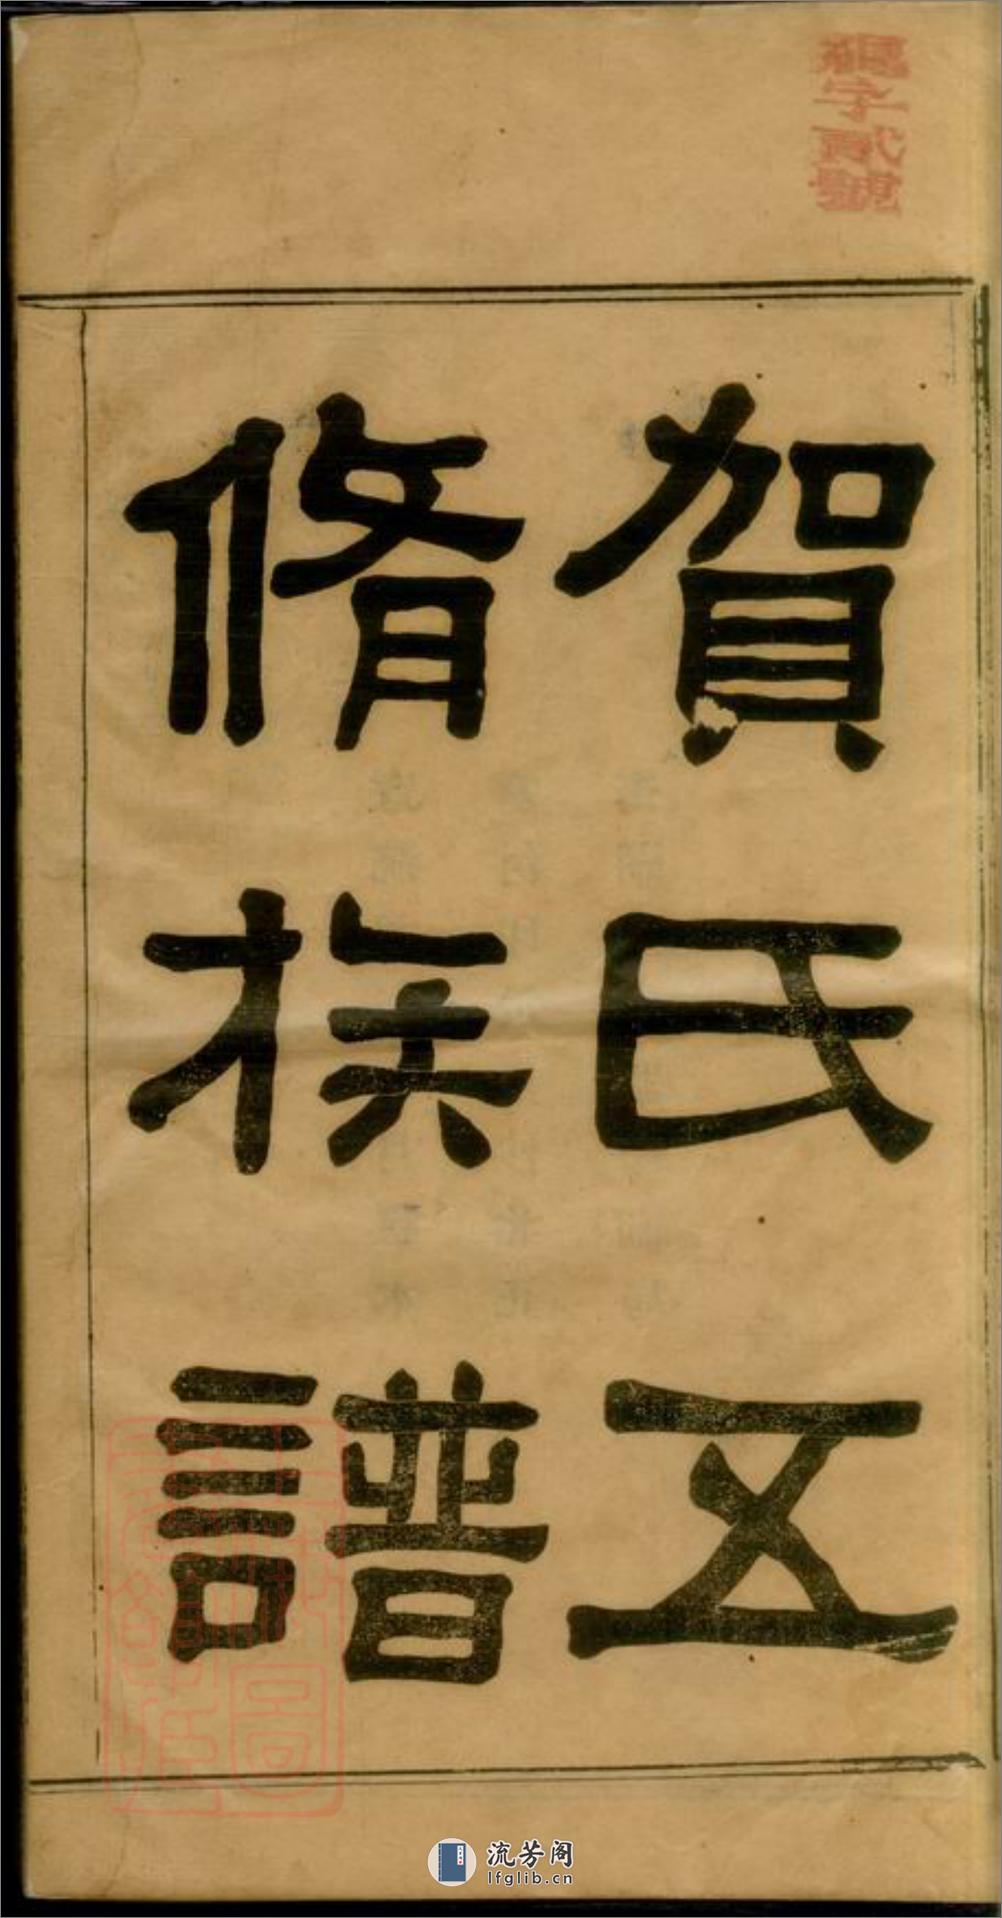 賀氏五
脩族譜
字貳號
流芳阁
lfglib.cn